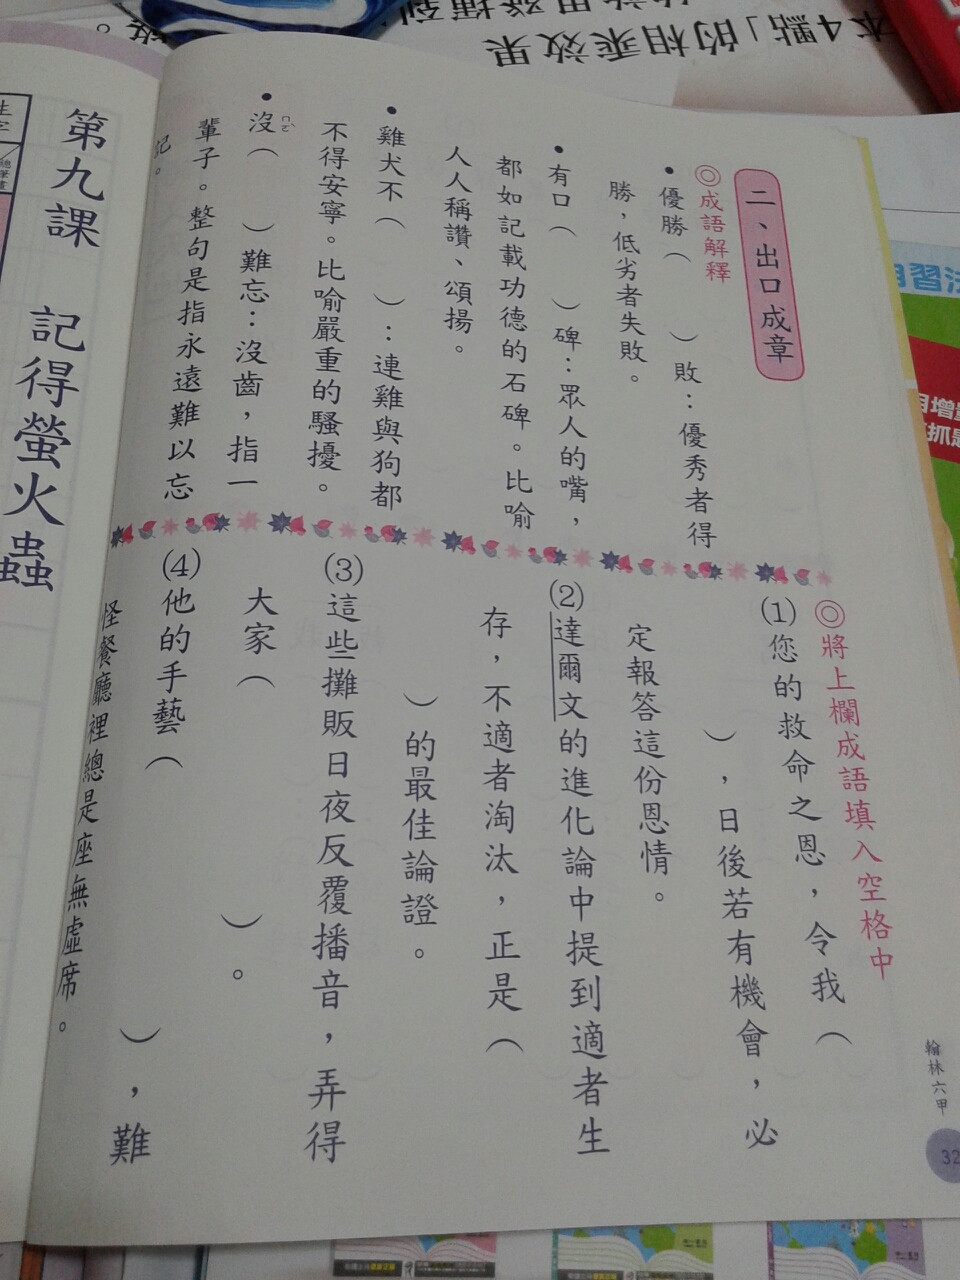 本4點」的相乘效果
二、出口成章
◎成語解釋
•優勝（　　）敗：優秀者得
勝，低劣者失敗。
•有口（　　）碑：眾人的嘴，
都如記載功德的石碑。比喻
人人稱讚、頌揚。
•雞犬不（　　）：連雞與狗都
不得安寧。比喻嚴重的騷擾。
•沒（　　）難忘：沒齒，指一
ㄇㄛˋ
輩子。整句是指永遠難以忘
記。
◎將上欄成語填入空格中
(1)您的救命之恩，令我（
），日後若有機會，必
定報答這份恩情。
(2)達爾文的進化論中提到適者生
存，不適者淘汰，正是（
）的最佳論證。
(3)這些攤販日夜反覆播音，弄得
大家（　　）。
(4)他的手藝（　　），難
怪餐廳裡總是座無虛席。
翰林六甲
32
第九課　記得螢火蟲
生字
總筆畫
自習法